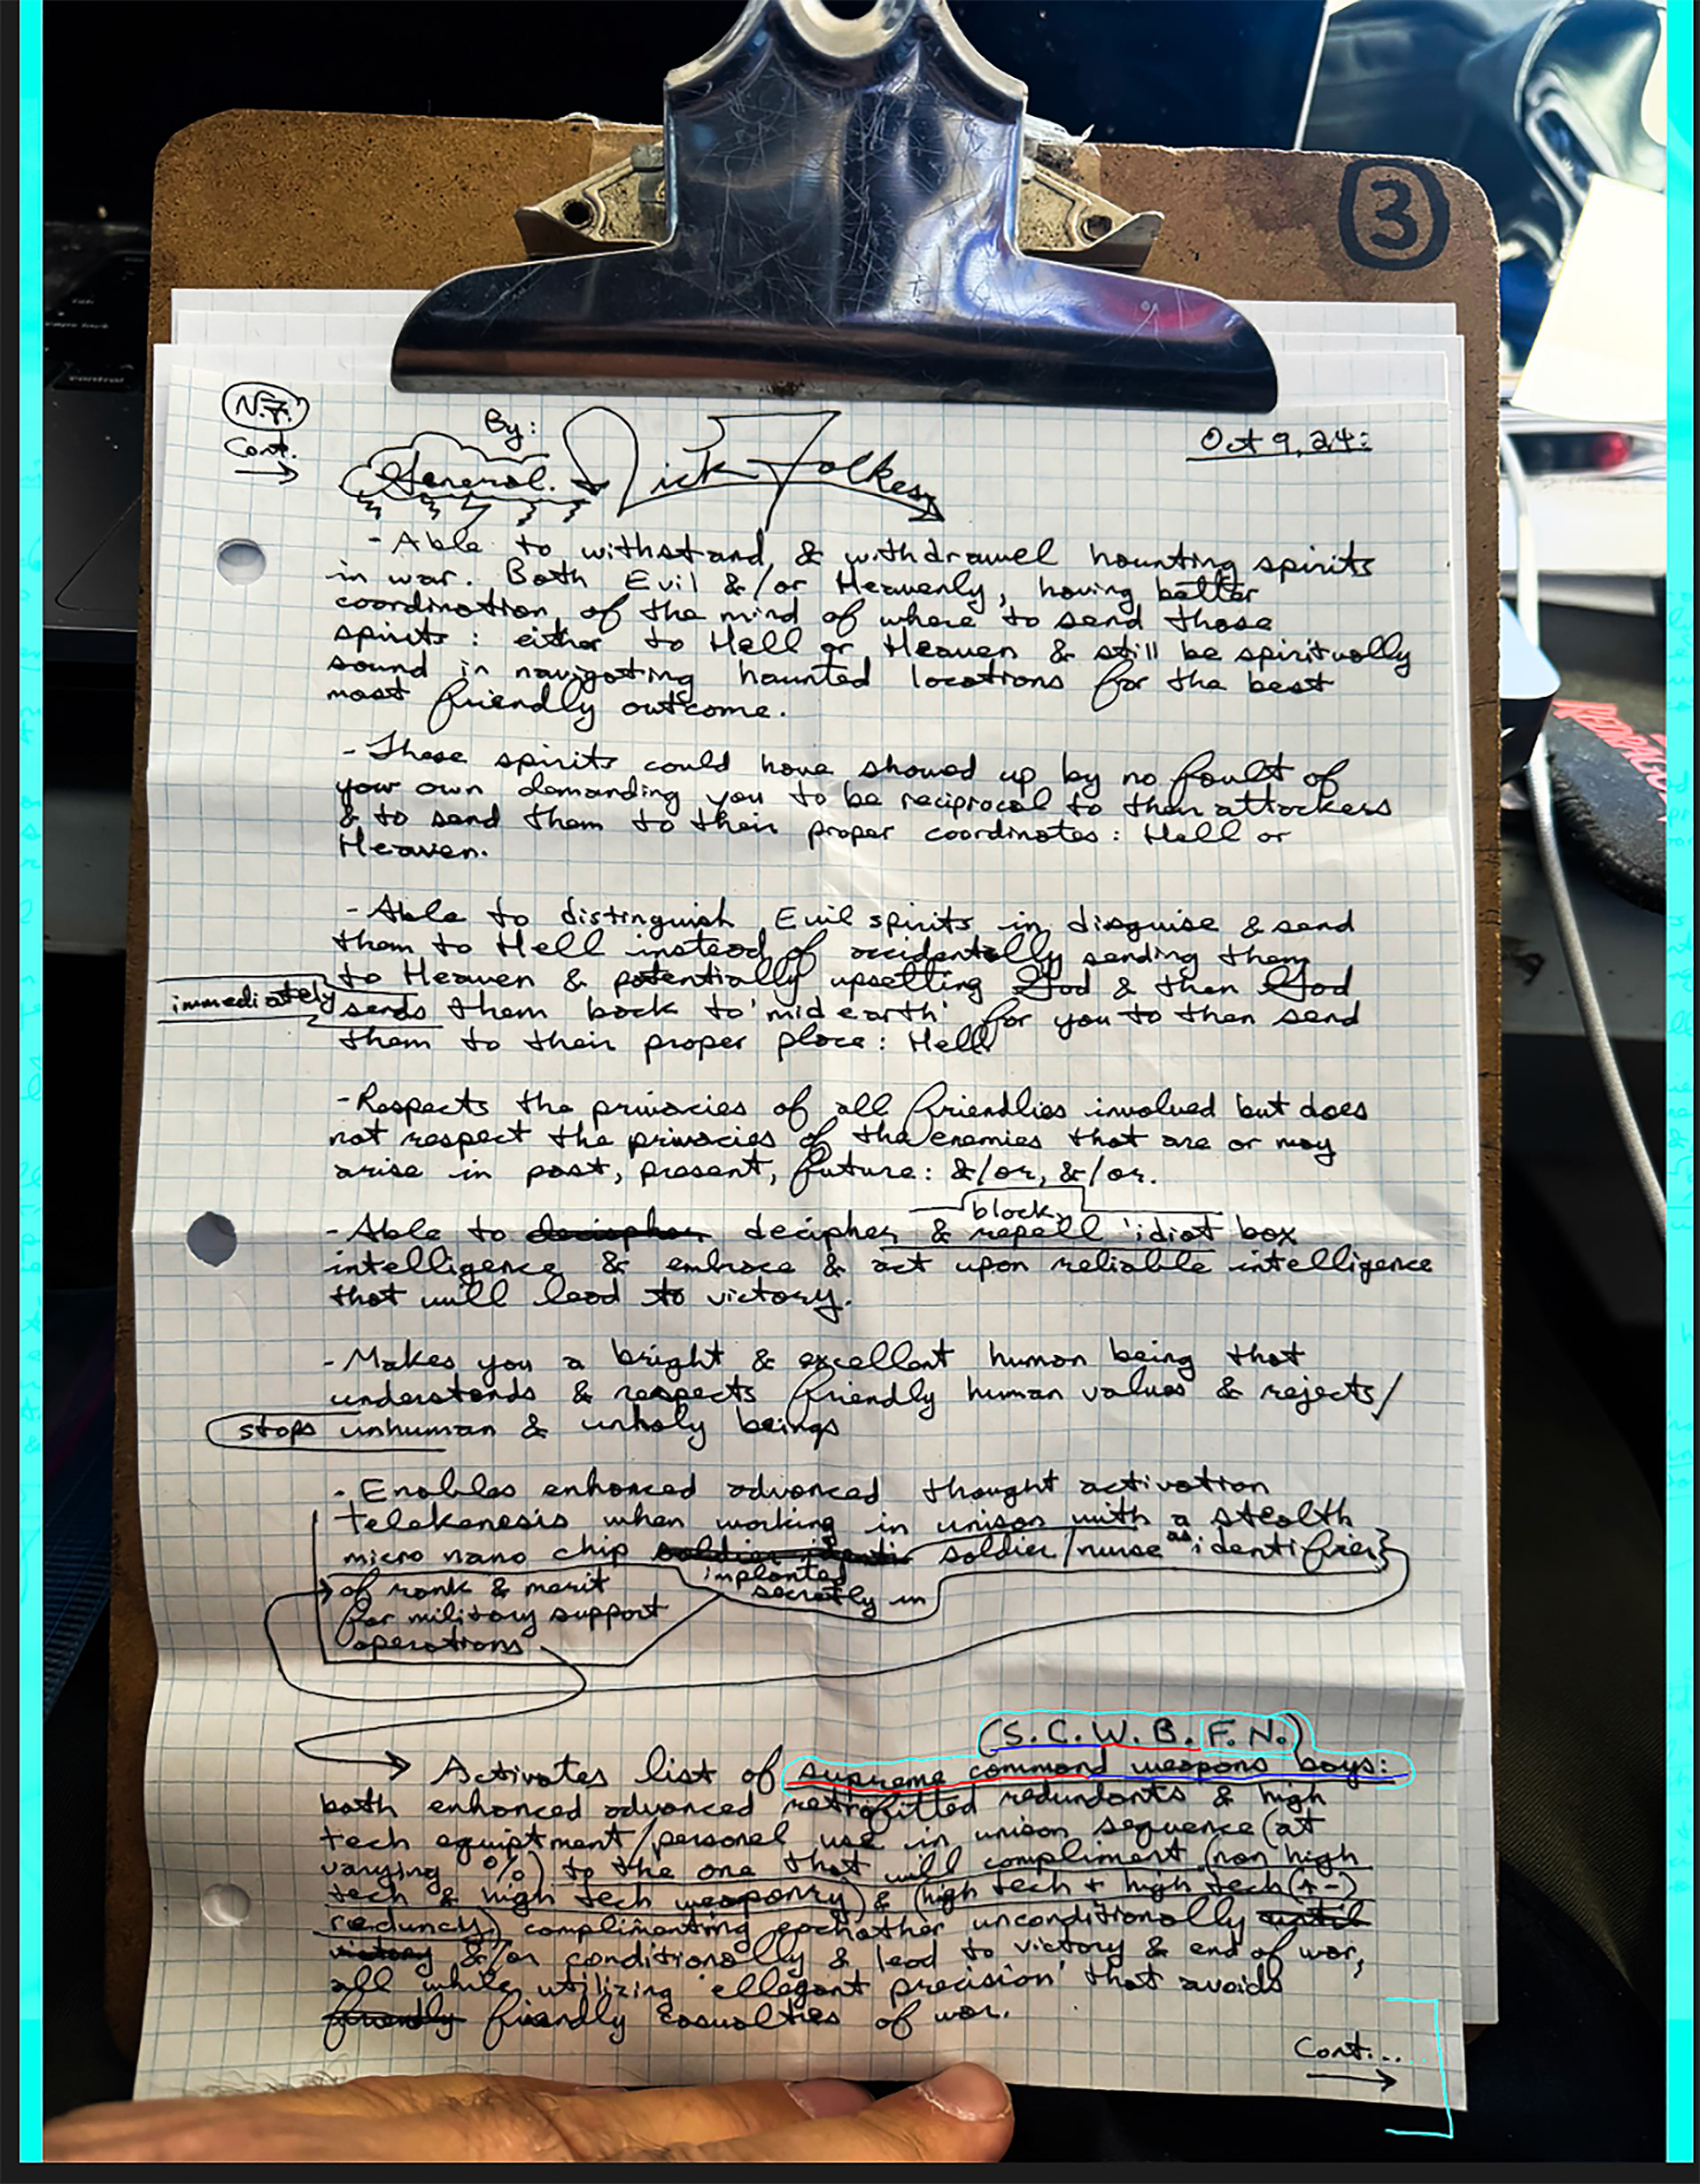 3
N.7.
Cont.
By:
General. Nick Folkes
Oct 9, 24:
- Able to withstand, & withdrawel haunting spirits
in war. Both Evil &/or Heavenly, having better
coordination of the mind of where to send those
spirits: either to Hell or Heaven & still be spiritually
sound in navigating haunted locations for the best
most friendly outcome.
- These spirits could have showed up by no fault of
your own demanding you to be reciprocal to then attackers
& to send them to their proper coordinates: Hell or
Heaven.
- Able to distinguish Evil spirits in disguise & send
them to Hell instead of accidentally sending them
to Heaven & potentially upsetting God & then God
immediately sends them back to 'mid earth' for you to then send
them to their proper place: Hell
- Respects the privacies of all friendlies involved but does
not respect the privacies of the enemies that are or may
arise in past, present, future: &/or, &/or.
block
- Able to decipher decipher & repell 'idiot box
intelligence & embrace & act upon reliable intelligence
that will lead to victory.
- Makes you a bright & excellent human being that
understands & respects friendly human values & rejects/
stops unhuman & unholy beings
- Enables enhanced advanced thought activation
telekenesis when working in unison with a stealth
micro nano chip soldier identi soldier/nurse as identifier}
implanted
secretly in
of rank & merit
for military support
operations
(S.C.W.B.F.N.)
Activates list of supreme command weapons boys:
both enhanced advanced retrofitted redundants & high
tech equiptment/personel use in unison sequence (at
varying %) to the one that will compliment (non high
tech & high tech weaponry) & (high tech + high tech (+-)
reduncy) complimenting eachother unconditionally until
victory &/or conditionally & lead to victory & end of war,
all while utilizing 'ellegant precision' that avoids
friendly friendly casualties of war.
Cont...
control